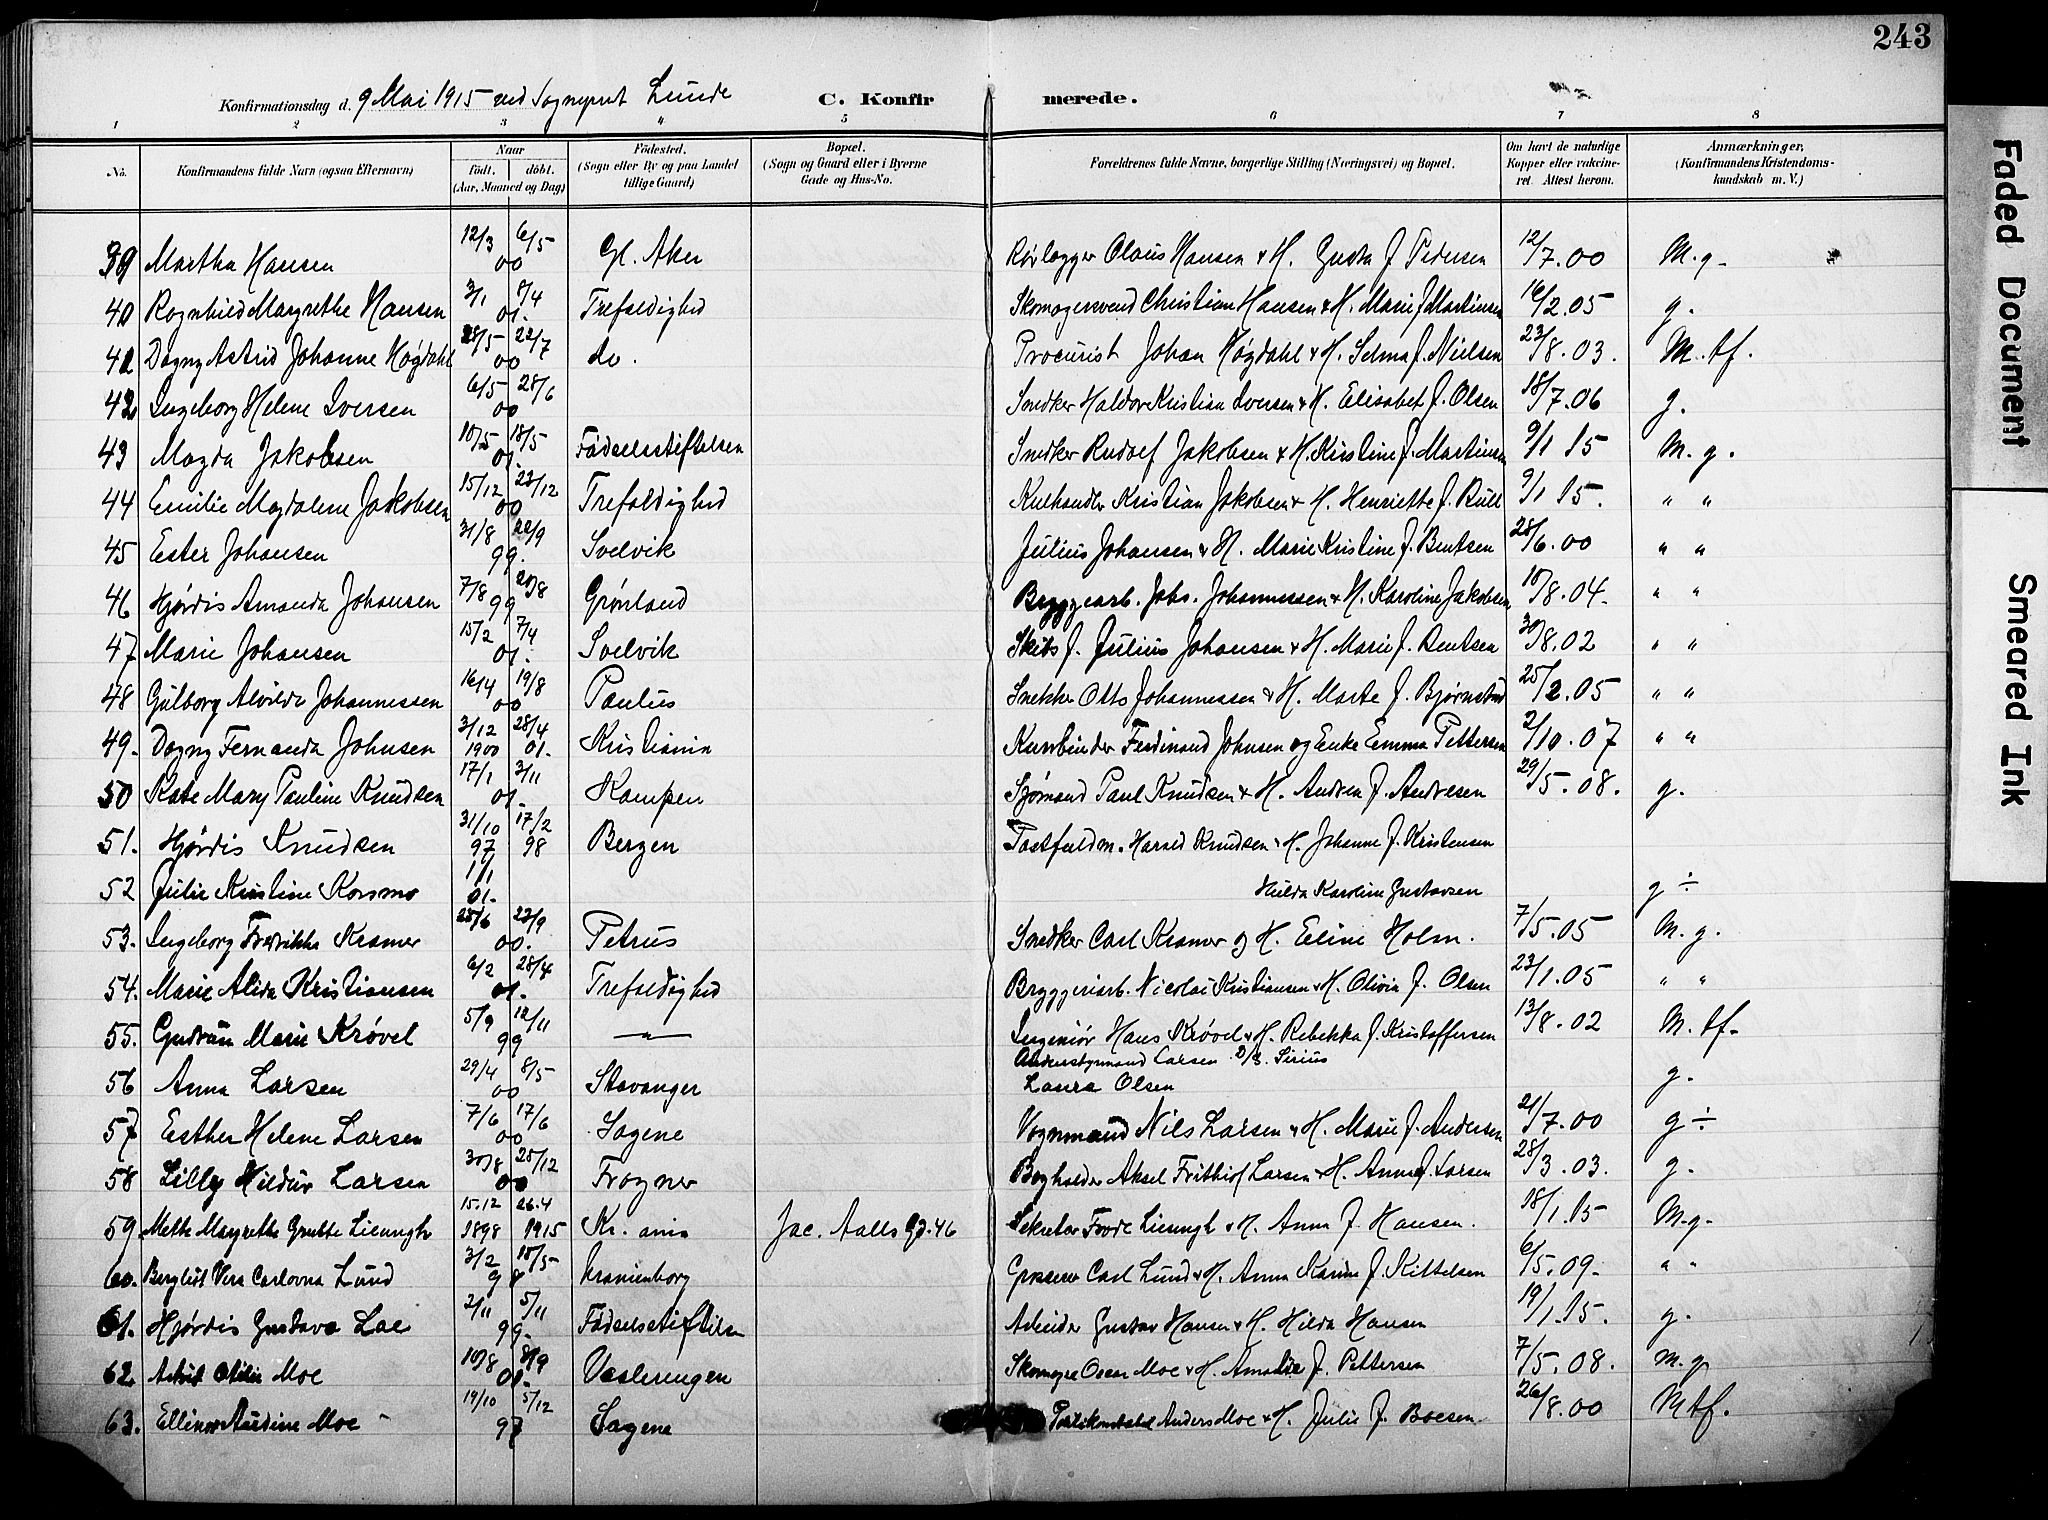 243
Konfirmationsdag d. 9 Mai 1915 ved Sogneprest Lunde C. Konfirmerede.
1 2 3 4 5 6 7 8
No. Konfirmandens fulde Navn (ogsaa Efternavn) Naar født. døbt. (Aar, Maaned og Dag) Fødested. (Sogn eller By og paa Landet tillige Gaard) Bopæl. (Sogn og Gaard eller i Byerne Gade og Hus-No. Forældrenes fulde Navne, borgerlige Stilling (Næringsvei) og Bopæl. Om havt de naturlige Kopper eller vakcineret. Attest herom. Anmærkninger, (Konfirmandens Kristendomskundskab m. V.)
39 Martha Hansen 12/3 6/5 00 Gl. Aker Rørlægger Olaus Hansen & H. Gusta f. Pedersen 12/7.00 M.g.
40 Ragnhild Margrethe Hansen 3/1 8/4 01. Trefoldighed Skomagersvend Christian Hansen & H. Marie f. Martinsen 16/2.05 g.
41 Dagny Astrid Johanne Høgdahl 28/5 22/7 00 do. Procurist Johan Høgdahl & H. Selma f. Nielsen 23/8.03. M.tf.
42 Ingeborg Helene Iversen 6/5 28/6 00 Snedker Haldor Kristian Iversen & H. Elisabet f. Olsen 18/7.06 g.
43 Magda Jakobsen 10/5 18/5 01. Fødselsstiftelsen Snedker Rudolf Jakobsen & H. Kristine f. Martinsen 9/1 15 M.g.
44 Emilie Magdalene Jakobsen 15/12 23/12 00 Trefoldighed Kulhandler Kristian Jakobsen & H. Henriette f. Bull 9/1 15. " "
45 Ester Johansen 31/8 22/9 99. Svelvik Julius Johansen & H. Marie Kristine f. Bentsen 28/6.00 " "
46 Hjørdis Amanda Johansen 7/8 20/8 99 Grønland Bryggearb. Johs. Johannessen & H. Karoline Jakobsen 10/8.04. " "
47 Marie Johansen 15/2 7/4 01. Svelvik Skibs f. Julius Johansen & H. Marie f. Bentsen 30/8.02 " "
48 Gulborg Alvilda Johannessen 16/4 19/8 00 Paulus Snekker Otto Johannessen & H. Marte f. Bjørnstad 25/2.05 " "
49. Dagny Fernanda Johnsen 3/12 1900 28/4 01. Kristiania Kurvbinder Ferdinand Johnsen og Enke Emma Pettersen 2/10.07 " "
50 Kate Mary Pauline Knudsen 17/1 3/11 01. Kampen Sjømand Paul Knudsen & H. Andrea f. Andresen 29/5.08. g.
51. Hjørdis Knudsen 31/10 97 17/2 98 Bergen Postfuldm. Harald Knudsen & H. Johanne f. Kristensen
52 Julie Kristine Korsmo 1/1 01. Hilda Karoline Gustavsen g ÷
53. Ingeborg Fredrikke Kramer 28/6 23/9 00. Petrus Snedker Carl Kramer og H. Eline Holm. 7/5.05 M.g.
54. Marie Alida Kristiansen 6/2 28/4 01. Trefoldighed Bryggeriarb. Nicolai Kristiansen & H. Olivia f. Olsen 23/1.05 " "
55. Gudrun Marie Krøvel 5/9 12/11 99 — " — Ingeniør Hans Krøvel & H. Rebekka f. Kristoffersen 13/8.02 M.tf.
56 Anna Larsen 29/4 8/5 00 Stavanger Larsen D/S. Sirius
Laura Olsen g.
57 Esther Helene Larsen 7/6 17/6 00 Sagene Vognmand Nils Larsen & H. Marie f. Andersen 21/7.00 g ÷
58 Lilly Hildur Larsen 30/8 25/12 00 Frogner Bogholder Aksel Frithiof Larsen & H. Anna f. Larsen 28/3.03. g.
59 Mette Margrethe Grutte Lieungh 15.12 1898 26.4 1915 Kr.ania Jac. Aalls Gd. 46 Sekretær Frode Lieungh & H. Anna f. Hansen. 18/1.15 M.g.
60. Bergliot Vera Carlovna Lund 3/2 10/5 98 Uranienborg Grosserer Carl Lund & H. Anna Karine f. Kittelsen 6/5.09. " "
61. Hjørdis Gustava Loe 2/11 5/11 99. Fødselsstiftelsen Arbeider Gustav Hansen & H. Hilda Hansen 19/1.15. g.
62. Astrid Otilie Moe 10/8 8/9 01. Vaalerengen Skomager Oscar Moe & H. Amalie f. Pettersen 7/5.08. M.g.
63. Ellinor Audine Moe 19/10 5/12 97 Sagene Politikonstabel Anders Moe & H. Julie f. Boesen. 26/8.00 Mtf.
Faded Document
Smeared Ink